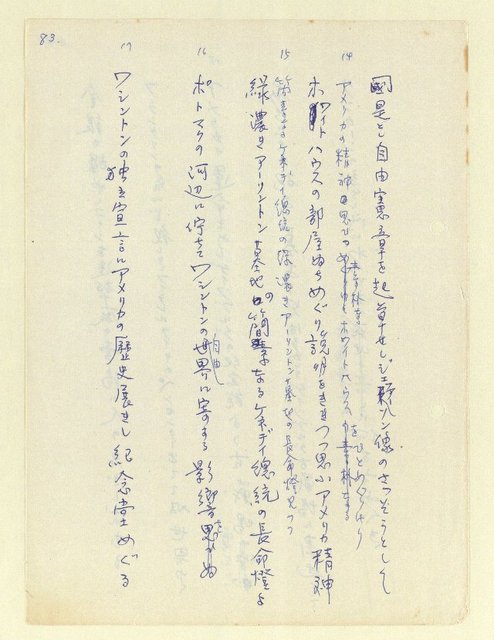 83.
國是と自由憲章を起草せしジェファソン像のさつそうとして
14
アメリカの精神思ひつつ
素朴なる
ホワイトハウス
をひとめぐりせり
ホワイトハウスの部屋ぬちめぐり説明をききつつ思ふアメリカ精神
15
簡素なるケネディ總統の緑濃きアーリントン墓地の長命燈見つつ
緑濃きアーリントン墓地の簡素なるケネディ總統の長命燈よ
16
ポトマクの河辺に佇ちてワシントンの世界に寄する影響思ひぬ
自由
17
ワシントンの独立宣言にアメリカの歴史展きし紀念堂めぐる